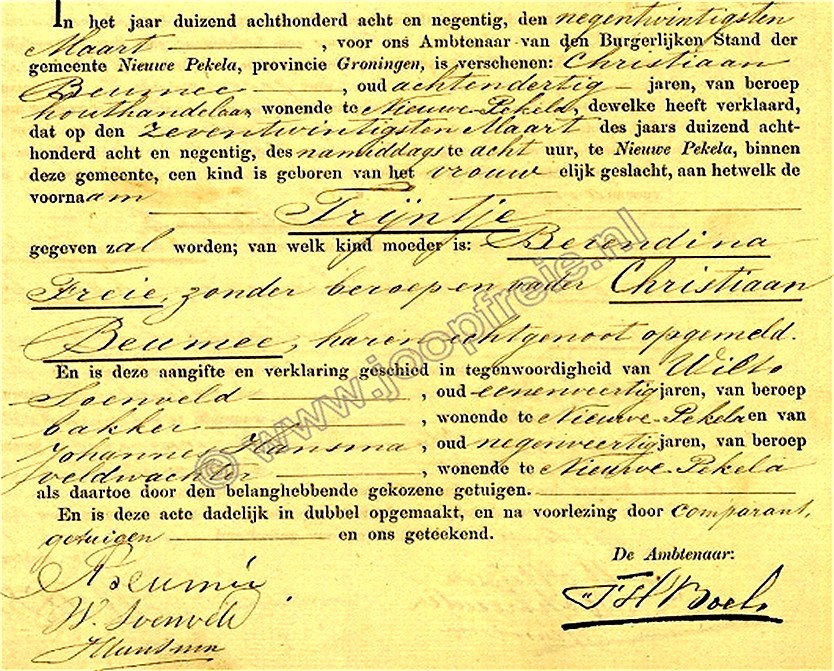 In het jaar duizend achthonderd acht en negentig, den negentwintigsten
Maart, voor ons Ambtenaar van den Burgerlijken Stand der
gemeente Nieuwe Pekela, provincie Groningen, is verschenen: Christiaan
Beumee, oud achtendertig jaren, van beroep
houthandelaar wonende te Nieuwe-Pekela, dewelke heeft verklaard,
dat op den zeventwintigsten Maart des jaars duizend acht-
honderd acht en negentig, des namiddags te acht uur, te Nieuwe Pekela, binnen
deze gemeente, een kind is geboren van het vrouwelijk geslacht, aan hetwelk de
voornaam
Trijntje
gegeven zal worden; van welk kind moeder is: Berendina
Freie, zonder beroep en vader Christiaan
Beumee, haren echtgenoot opgemeld.
En is deze aangifte en verklaring geschied in tegenwoordigheid van Wilto
Soenveld, oud eenenveertig jaren, van beroep
bakker, wonende te Nieuwe-Pekela en van
Johannes Hansma, oud negenveertig jaren, van beroep
veldwachter, wonende te Nieuwe-Pekela
als daartoe door den belanghebbende gekozene getuigen.
En is deze acte dadelijk in dubbel opgemaakt, en na voorlezing door comparant,
getuigen en ons geteekend.
De Ambtenaar:
Beumée
W. Soenveld
© www.joopfreie.nl